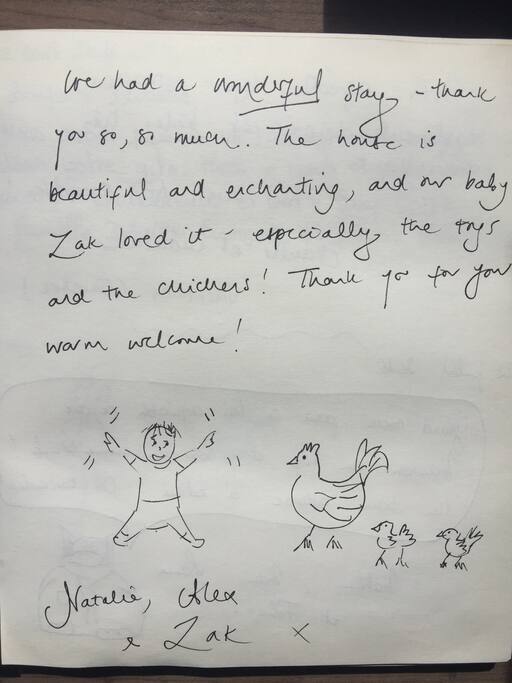 We had a wonderful stay - thank
you so, so much. The house is
beautiful and enchanting, and our baby
Zak loved it - especially the toys
and the chickens! Thank you for your
warm welcome!
Natalie, Alex
& Zak x